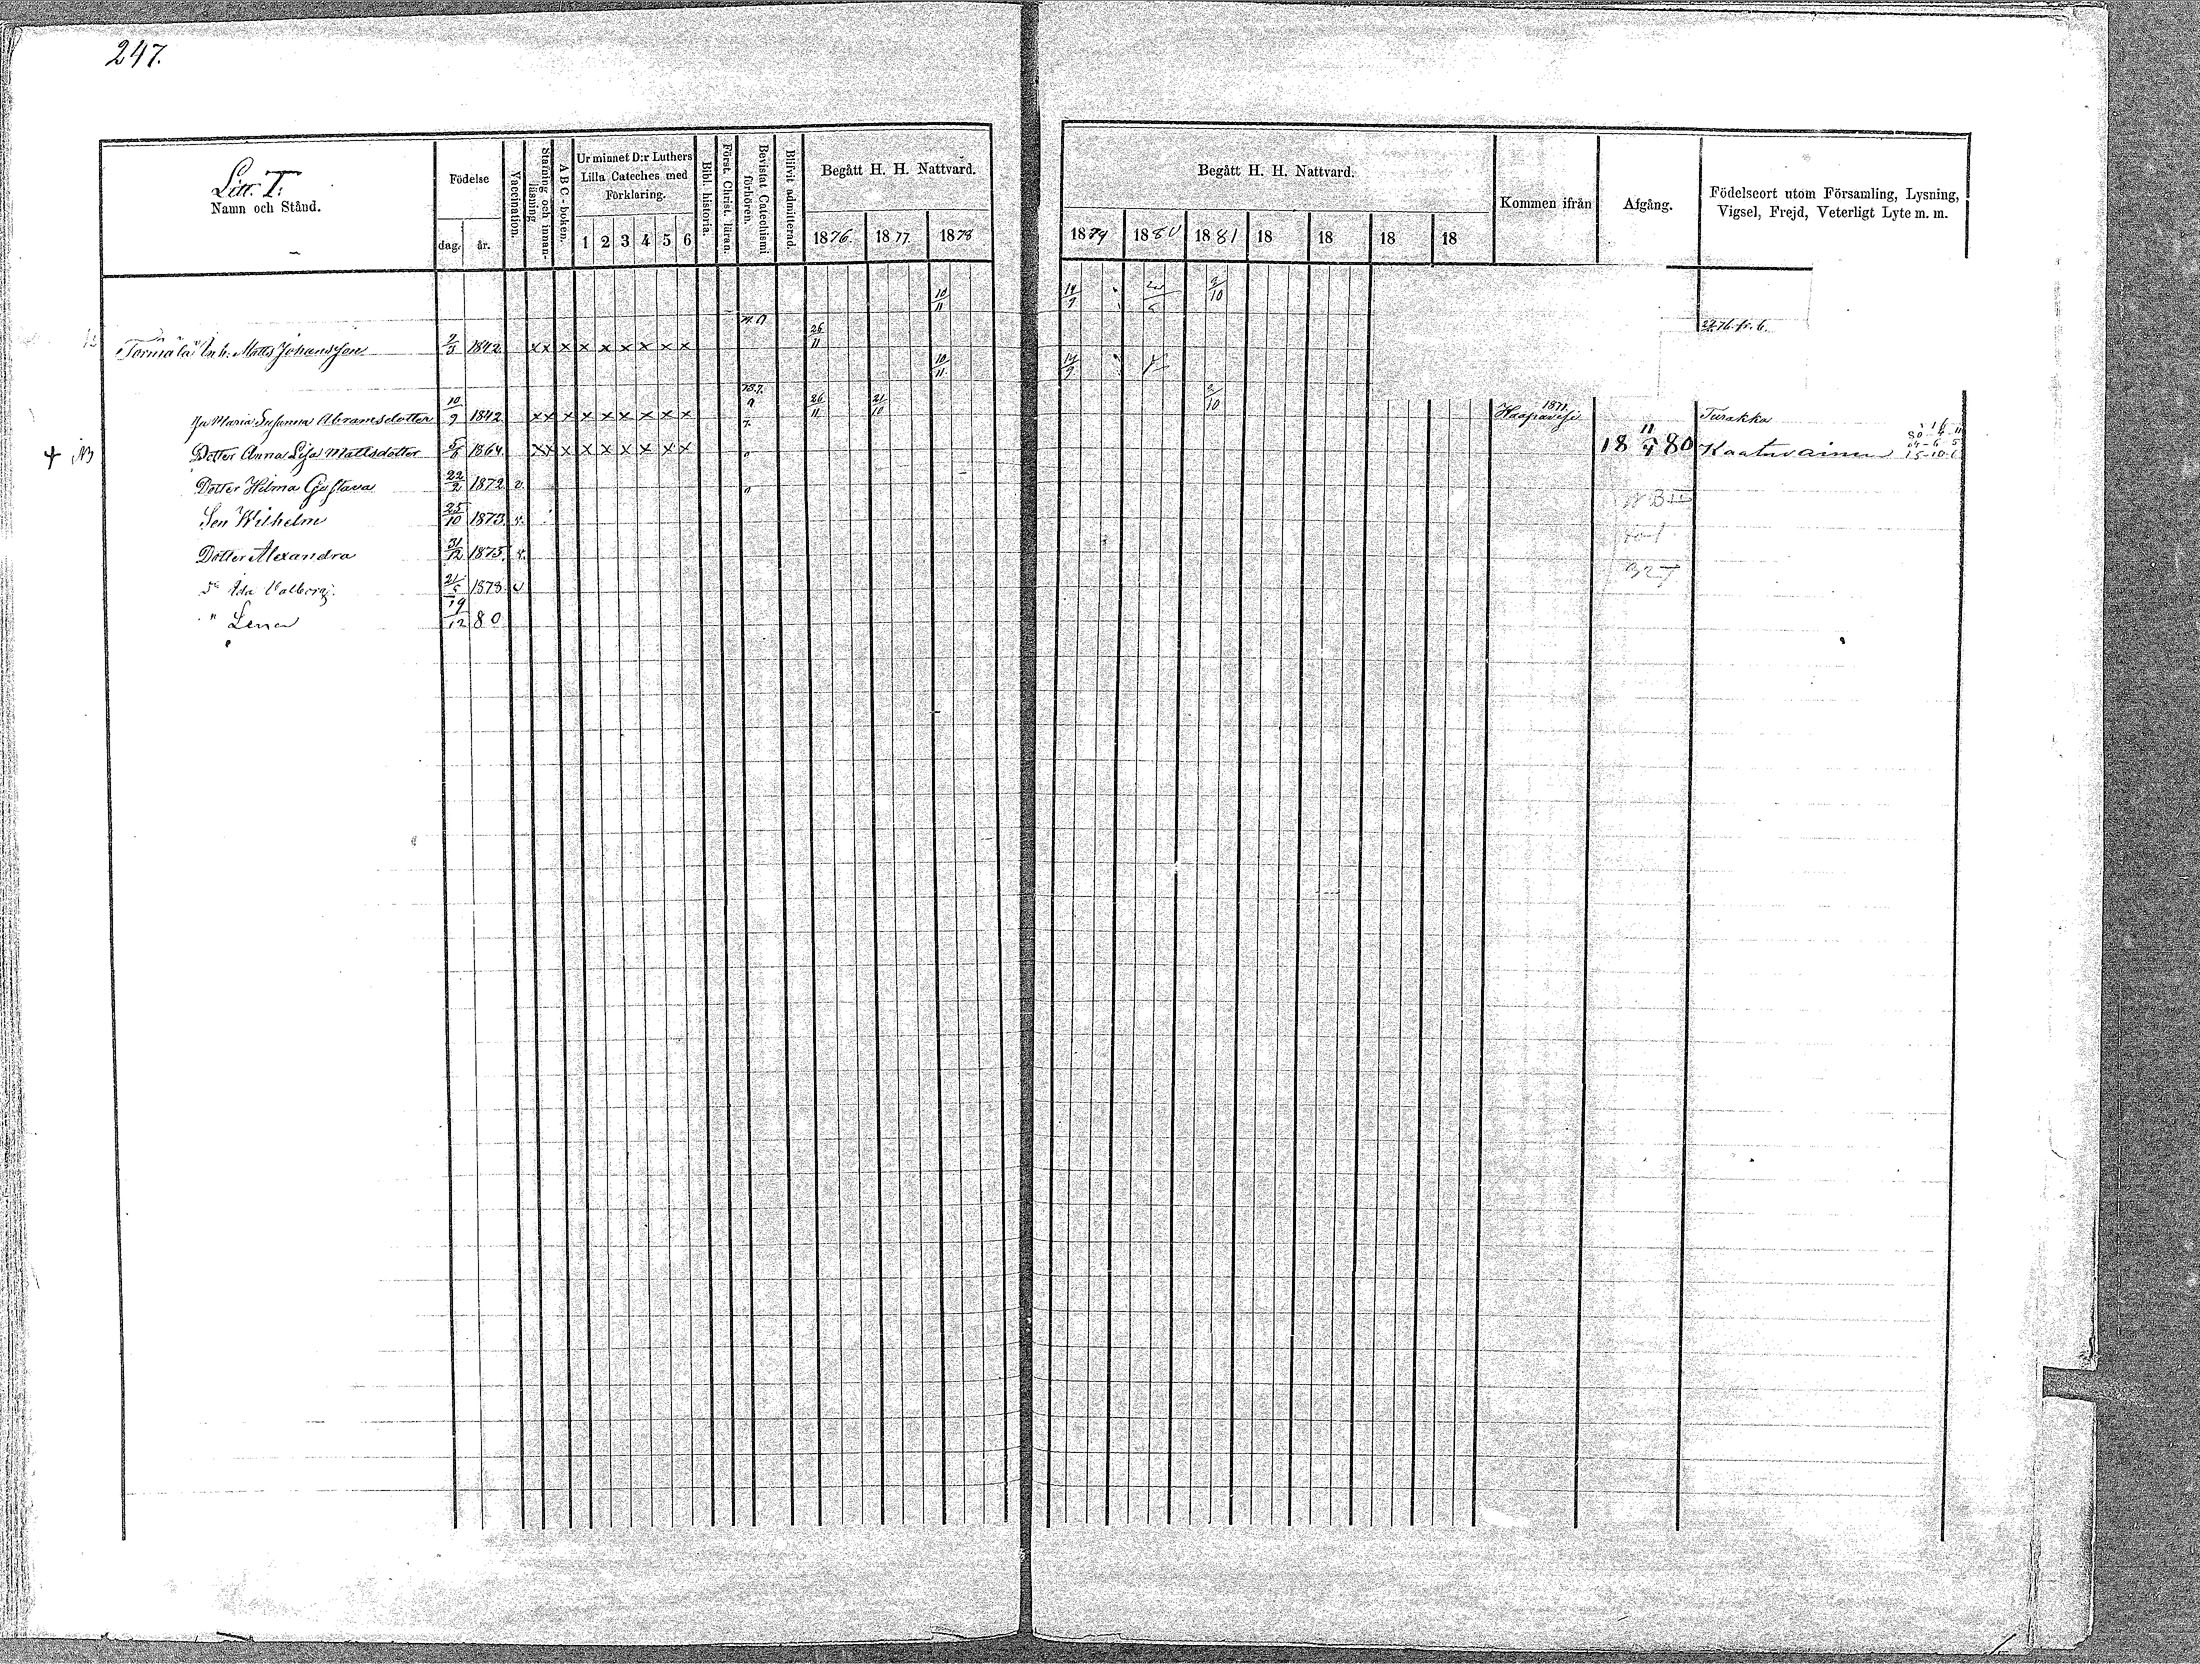 247.
Litt. T:
Namn och Stånd.
Födelse
dag. år.
Vaccination.
Stafning och innan-läsning
A B C - boken.
Ur minnet D:r Luthers
Lilla Cateches med
Förklaring.
1 2 3 4 5 6
Bibl. historia.
Först. Christ. läran.
Bevistat Catechismi förhören.
Blifvit admitterad.
Begått H. H. Nattvard.
1876. 1877. 1878
Begått H. H. Nattvard.
1879 1880 1881 18 18 18 18
Kommen ifrån
Afgång.
Födelseort utom Församling, Lysning,
Vigsel, Frejd, Veterligt Lyte m. m.
10/11 2/10
26/11
"Törmälä" Inh. Matts Johansson 1842 x x x x x x x x x
10/11
Maria Susanna Abramsdotter 10/9 1842 x x x x x x x x x 26/11 21/10 2/10 Haapavesi 1871. Turakka
Dotter Anna Lisa Mattsdotter 5/6 1864 x x x x x x x x x 18 11/4 80
Dotter Hilma Gustava 22/2 1872 v.
Son Wilhelm 25/10 1873. v.
Dotter Alexandra 31/12 1875. v.
Ida Valborg. 21/5 1878 v
" Lena 19/12 80